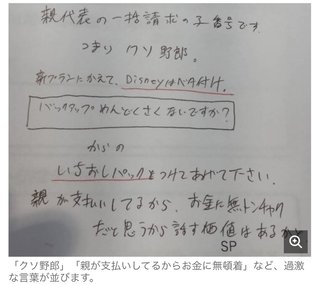 親代表の一括請求の子番号です
つまり クソ野郎。
新プランにかえて、Disneyはベタ付け。
バックアップめんどくさくないですか?
からの
いちおしパックをつけてあげて下さい。
親が支払いしてるから、お金に無トンチャク
だと思うから話す価値はあるかと
SP
「クソ野郎」「親が支払いしてるからお金に無頓着」など、過激
な言葉が並びます。